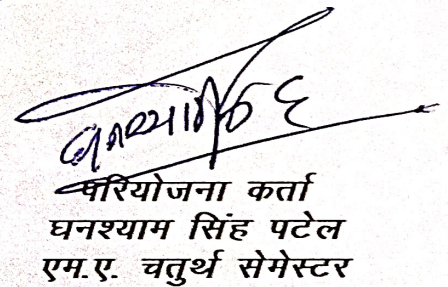 घनश्याम सिंह
परियोजना कर्ता
घनश्याम सिंह पटेल
एम.ए. चतुर्थ सेमेस्टर